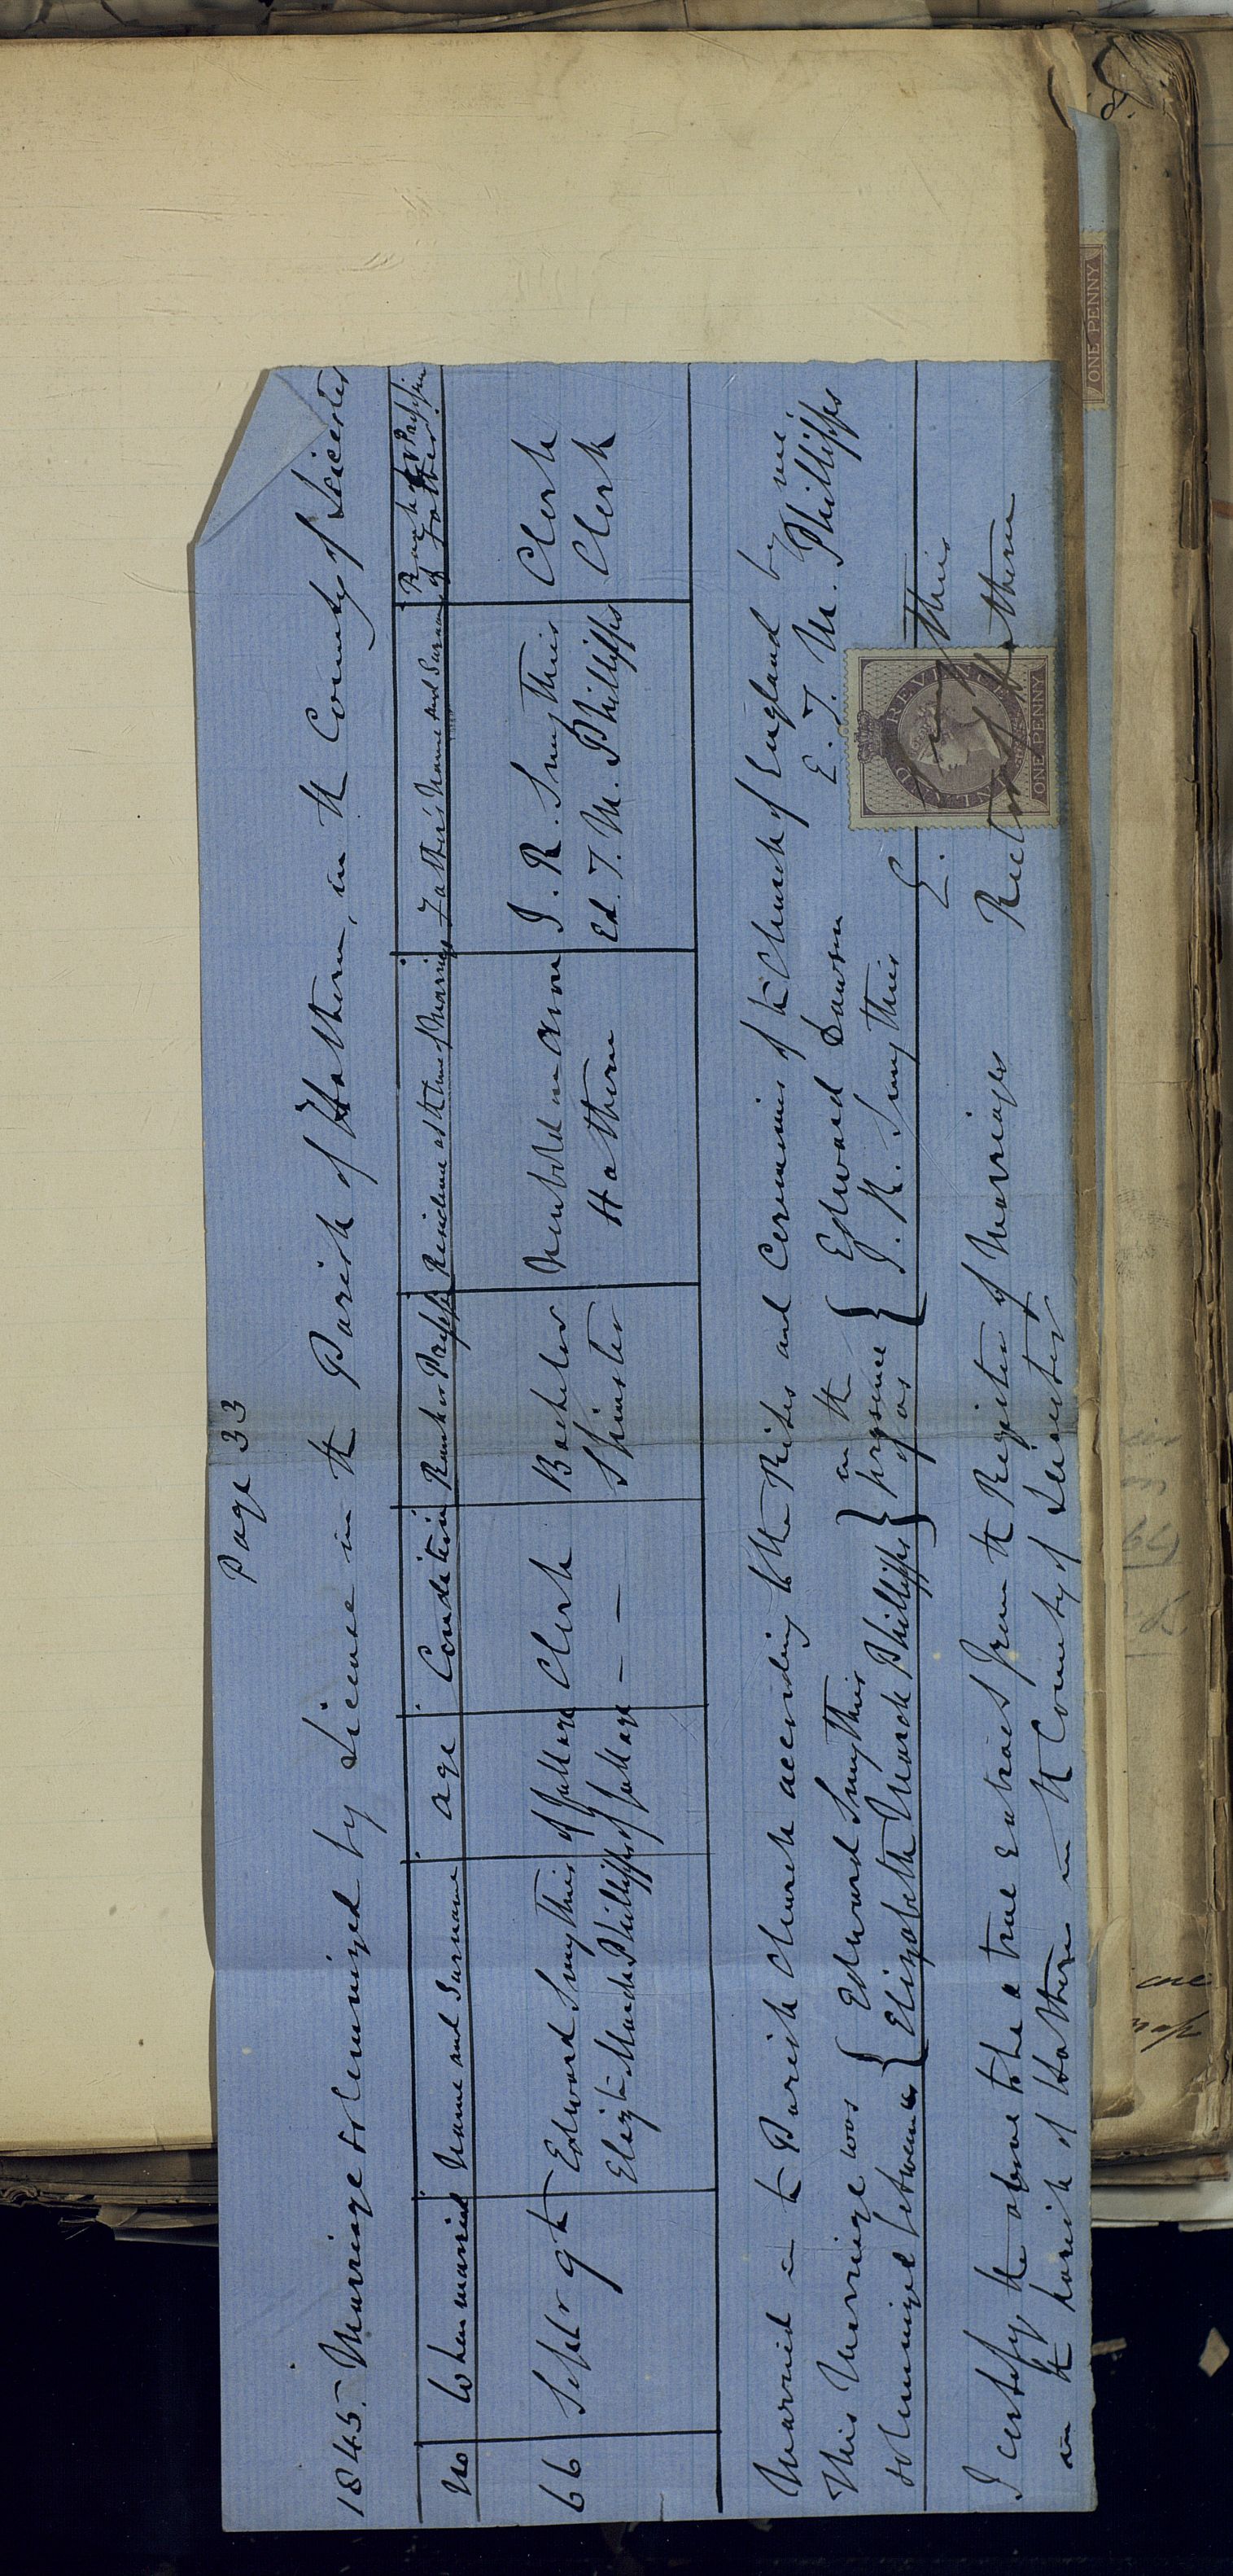 Page 33
1845. Marriage solemnized by Licence in the Parish of Hathern, in the County of Leicester
No When married Name and Surname age Condition Rank or Profession Residence at the time of Marriage Father's Name and Surname Rank or Profession of Father
66 Septbr 9th Edward Smythies of full age Clerk Bachelor J. R. Smythies Clerk
Elizth March Phillipps of full age — — Spinster Hathern Ed. T. M. Phillipps Clerk
Married in the Parish Church according to the Rites and Ceremonies of the Church of England by me,
E. T. M. Phillipps
This Marriage was { Edward Smythies } in the { Edward Dawson
solemnized between { Elizabeth March Phillipps } presence of us { J. R. Smythies
I certify the above to be a true extract from the Register of Marriages
in the parish of Hathern in the County of Leicester
E. Smythies
Rector of Hathern
INLAND REVENUE
ONE PENNY
ONE PENNY